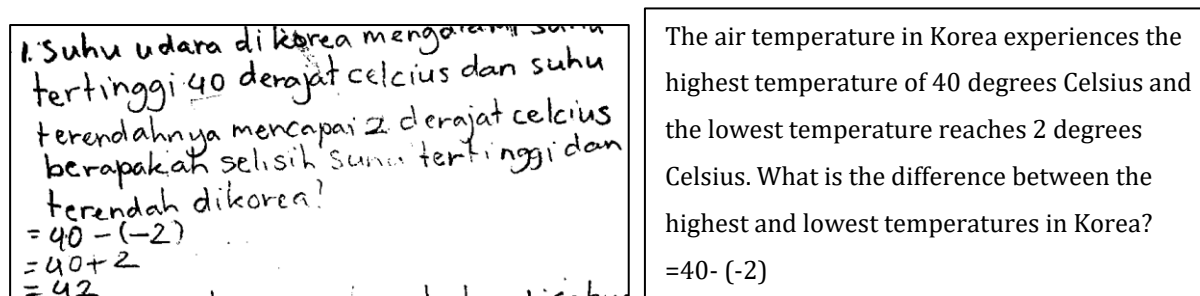 1. Suhu udara di korea mengalami suhu
tertinggi 40 derajat celcius dan suhu
terendahnya mencapai 2 derajat celcius
berapakah selisih suhu tertinggi dan
terendah dikorea?
= 40 - (-2)
= 40 + 2
= 42
The air temperature in Korea experiences the
highest temperature of 40 degrees Celsius and
the lowest temperature reaches 2 degrees
Celsius. What is the difference between the
highest and lowest temperatures in Korea?
=40- (-2)